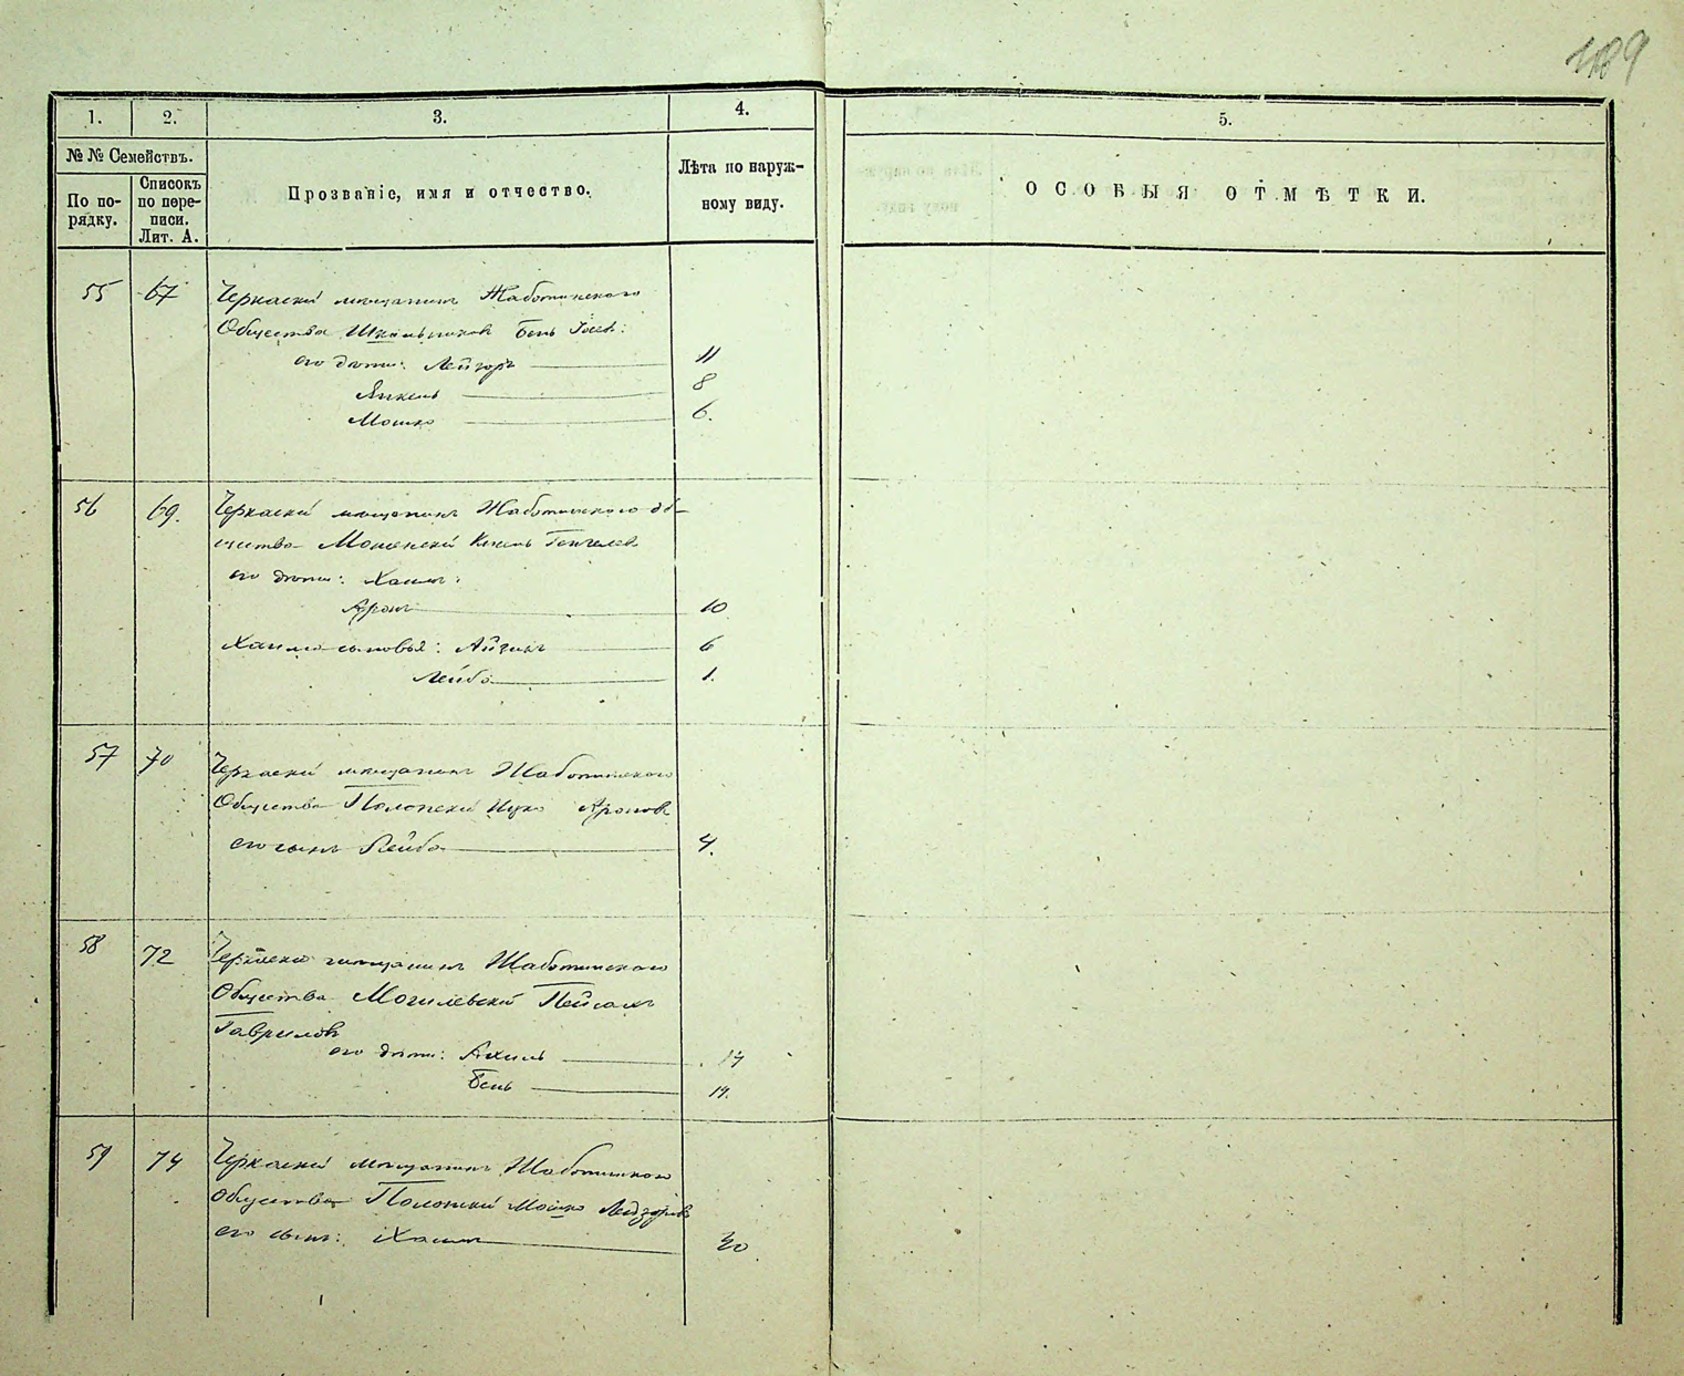 489
1.
2.
3.
4.
5.
№ № Семействъ.
По по-
рядку.
Списокъ
по пере-
писи.
Лит. А.
Прозваніе, имя и отчество.
Лѣта по наруж-
ному виду.
ОСОБЫЯ ОТМѢТКИ.
55 67 Черкаскій мѣщанинъ Жаботинскаго
Общества Школьниковъ Бень
его дѣти: Лейзоръ 11
Янкель 8
Мошко 6.
56 69. Черкаскій мѣщанинъ Жаботинскаго об-
щества
его дѣти: Хаимъ:
Аронъ 10
Хаима сыновья: Айзикъ 6
Лейба 1.
57 70 Черкаскій мѣщанинъ Жаботинскаго
Общества Полонскій Ицко Ароновъ
его сынъ Лейба 4.
58 72 Черкаскій мѣщанинъ Жаботинскаго
Общества Могилевскій Пейсахъ
Гавриловъ
его дѣти:
Бень
59 74 Черкаскій мѣщанинъ Жаботинскаго
Общества Мошко
его сынъ: Хаимъ